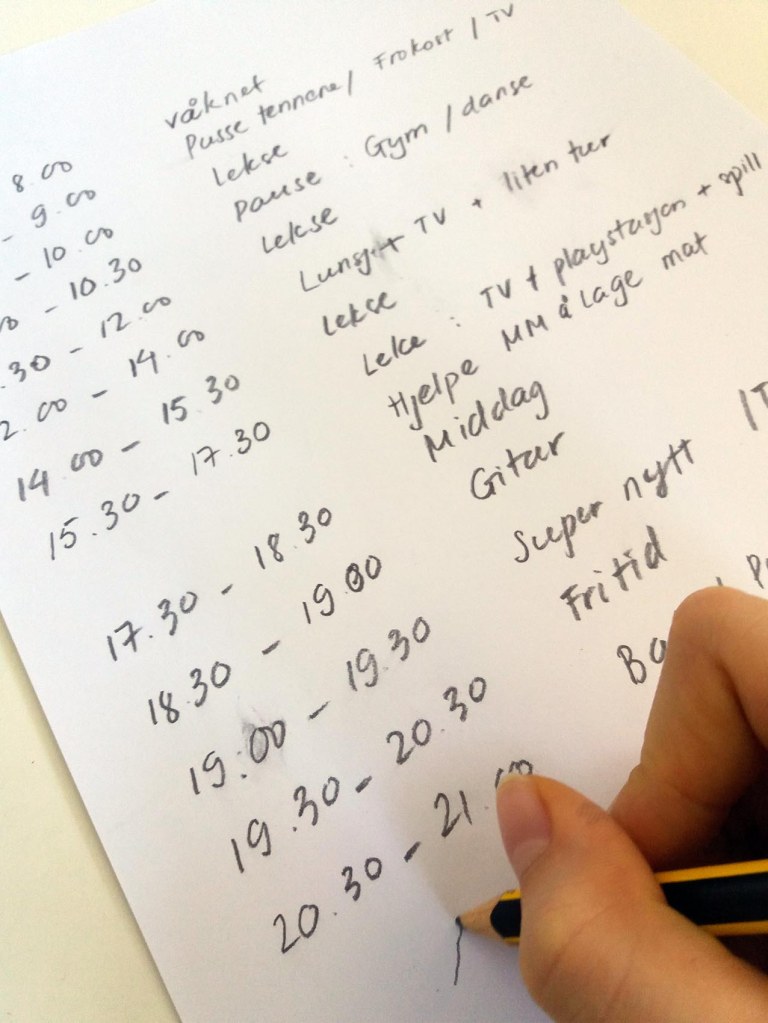 8.00 våknet
- 9.00 Pusse tennene / Frokost / TV
- 10.00 Lekse
- 10.30 pause : Gym / danse
.30 - 12.00 Lekse
2.00 - 14.00 Lunsj + TV + liten tur
14.00 - 15.30 Lekse
15.30 - 17.30 Leke : TV + playstasjon + spill
Hjelpe MM å lage mat
17.30 - 18.30 Middag
18.30 - 19.00 Gitar
19.00 - 19.30 Super nytt
19.30 - 20.30 Fritid
20.30 - 21.00 Ba